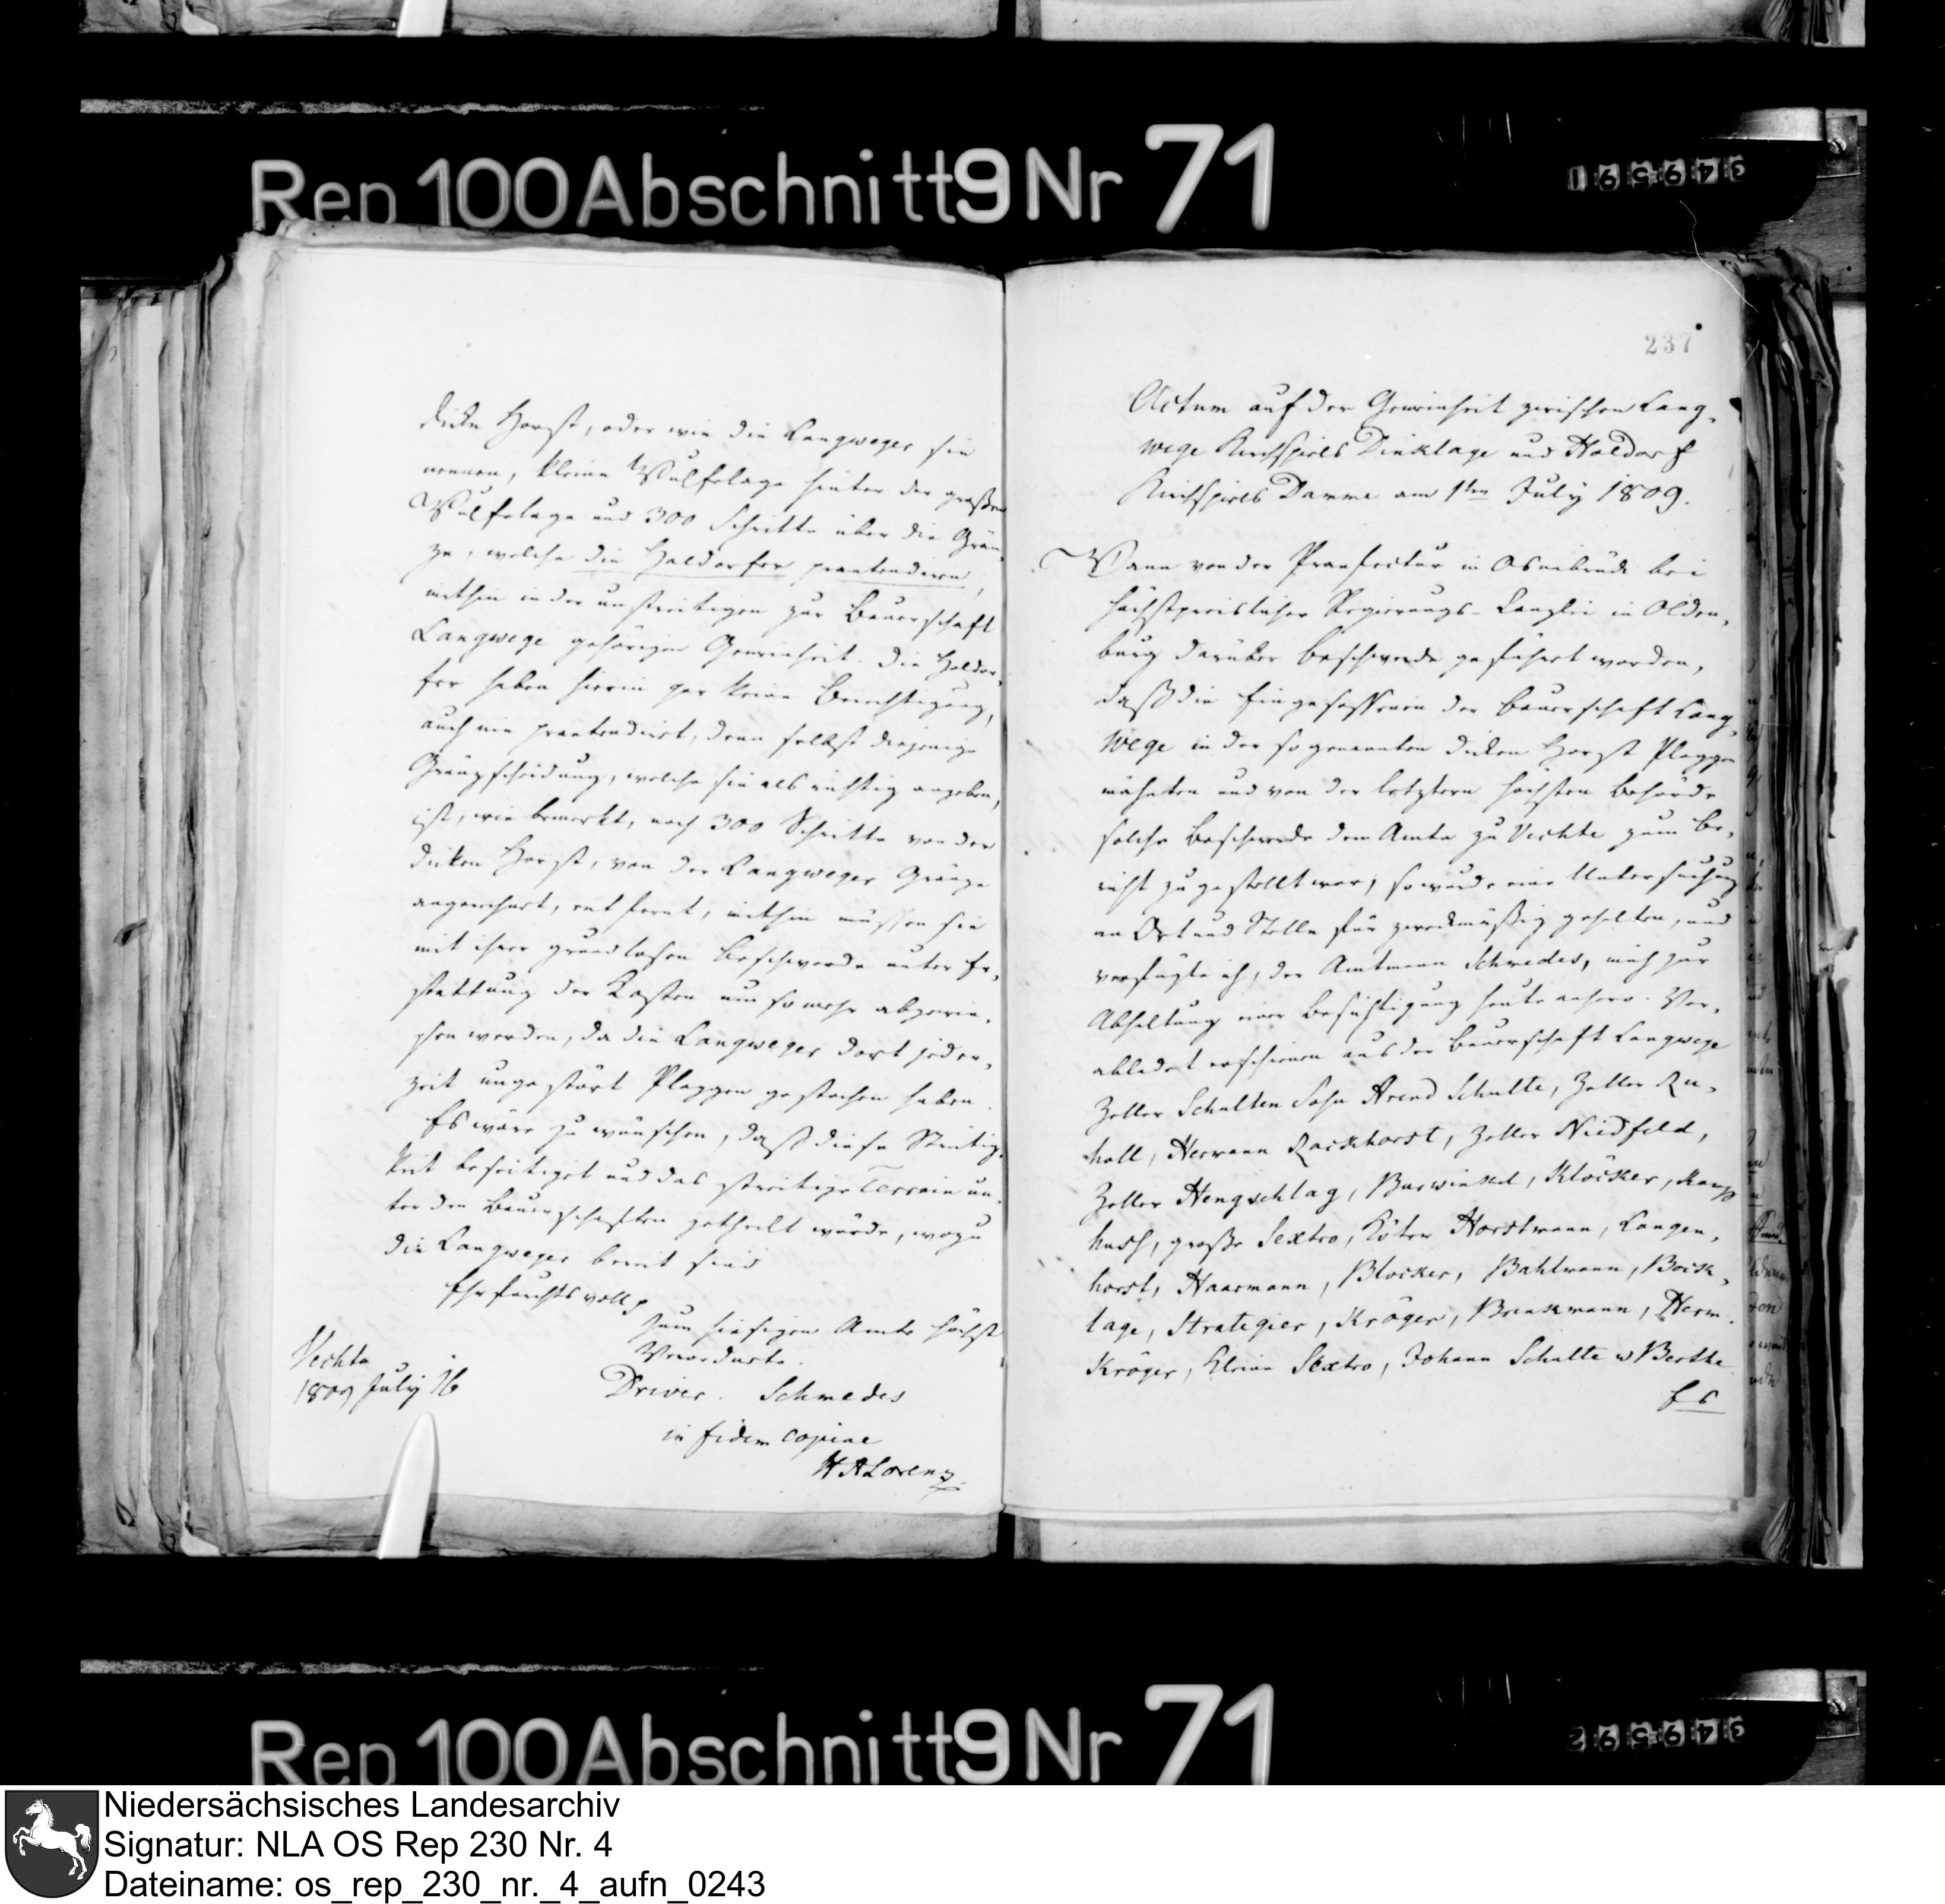 Rep 100 Abschnitt 9 Nr 71
349591
dicken Horst, oder wie die Langweger sie
nennen, kleine Wulfelage hinter der großen
Wulfelage und 300 Schritte über die Grän,
ze, welche die Holdorfer praetendiren,
mithin in der unstreitigen zur Bauerschaft
Langwege gehörigen Gemeinheit. Die Holdor,
fer haben hierin gar keine Berechtigung,
auch nie praetendirt, denn selbst diejenige
Gränzscheidung, welche sie als richtig angeben,
ist, wie bemerkt, noch 300 Schritte von der
dicken Horst, von der Langweger Gränze
angerechnet, entfernt, mithin müssen sie
mit ihrer grundlosen Beschwerde unter Er,
stattung der Kosten um so mehr abgewie,
sen werden, da die Langweger dort jeder,
zeit ungestört Plaggen gestochen haben.
Es wäre zu wünschen, daß diese Streitig,
keit beseitiget und das streitige Terrain un,
ter den Bauerschaften getheilt würde, wozu
die Langweger bereit sind
Ehrfurchtsvoll
zum hiesigen Amte höchst
Verordnete.
Vechta
1809 July 16
Driver. Schmedes
in fidem copiae
H A Lorenz
237
Actum auf der Gemeinheit zwischen Lang,
wege Kirchspiels Dinklage und Holdorf
Kirchspiels Damme am 1ten July 1809.
Wann von der Praefectur in Osnabrück bei
höchstpreislicher Regierungs-Canzlei in Olden,
burg darüber Beschwerde geführt worden,
daß die Eingesessenen der Bauerschaft Lang,
wege in der so genannten dicken Horst Plaggen
mäheten und von der letztern höchsten Behörde
solche Beschwerde dem Amte zu Vechte zum Be,
richt zugestellt war, so wurde eine Untersuchung
an Ort und Stelle für zweckmäßig gehalten, und
verfügte ich, der Amtmann Schmedes, mich zur
Abhaltung einer Besichtigung heute anhero. Ver,
abladet erschienen aus der Bauerschaft Langwege
Zeller Schulten Sohn Arend Schulte, Zeller Ru,
holl, Hermann Rackhorst, Zeller Niedfeld,
Zeller Hengschlag, Burwinkel, Klöcker, Kamp
husch, große Sextro, Köter Horstmann, Langen,
horst, Haarmann, Blocker, Bahlmann, Bock,
lage, Strategier, Kröger, Brinkmann, Herm.
Kröger, kleine Sextro, Johann Schulte u Berthe
Es
Rep 100 Abschnitt 9 Nr 71
349592
Niedersächsisches Landesarchiv
Signatur: NLA OS Rep 230 Nr. 4
Dateiname: os_rep_230_nr._4_aufn_0243